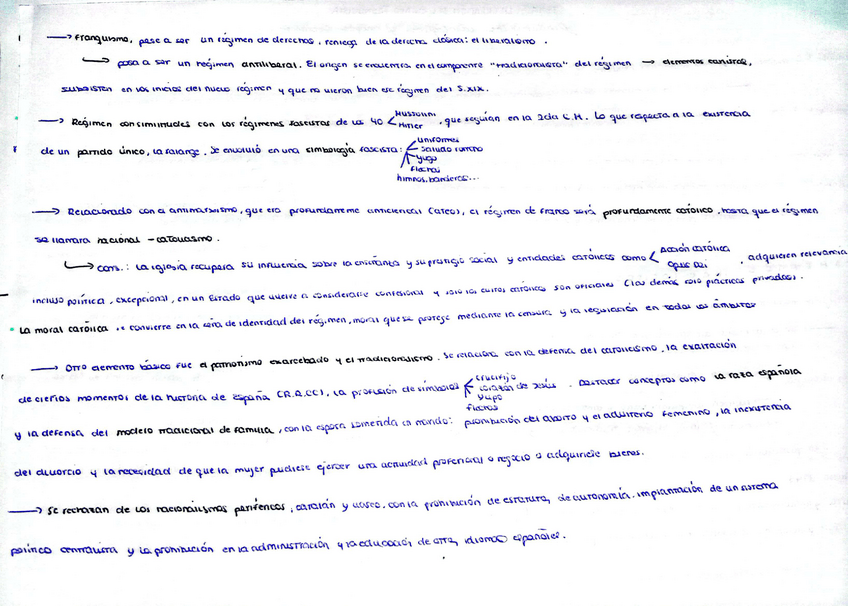 → Franquismo, pasa a ser un régimen de derechas, reniega de la derecha clásica: el liberalismo.
↳ pasa a ser un régimen antiliberal. El origen se encuentra en el componente "tradicionalista" del régimen → elementos carlistas,
subsisten en los inicios del nuevo régimen y que no vieron bien ese régimen del S.XIX.
→ Régimen con similitudes con los regímenes fascistas de los 40 < Mussolini
Hitler , que seguían en la 2da G.M. Lo que respecta a la existencia
de un partido único, la falange. Se envolvió en una simbología fascista: uniformes
saludo romano
yugo
flechas
himnos, banderas...
→ Relacionado con el antimarxismo, que era profundamente anticlerical (ateo), el régimen de Franco será profundamente católico, hasta que el régimen
se llamara nacional-catolicismo.
↳ cons.: La iglesia recupera su influencia sobre la enseñanza y su prestigio social y entidades católicas como < Acción católica
Opus Dei , adquieren relevancia
incluso política, excepcional, en un Estado que vuelve a considerarse confesional y solo los cultos católicos son oficiales (las demás solo prácticas privadas).
La moral católica se convierte en la seña de identidad del régimen, moral que se protege mediante la censura y la legislación en todos los ámbitos
→ Otro elemento básico fue el patriotismo exarcebado y el tradicionalismo. Se relaciona con la defensa del catolicismo, la exaltación
de ciertos momentos de la historia de España (RR.CC), la profusión de símbolos crucifijo
corazón de Jesús
yugo
flechas . Destacar conceptos como la raza española
y la defensa del modelo tradicional de familia, con la esposa sometida al marido: prohibición del aborto y el adulterio femenino, la inexistencia
del divorcio y la necesidad de que la mujer pudiese ejercer una actividad profesional o negocio o adquiriese bienes.
→ Se rechazan de los nacionalismos periféricos, catalán y vasco, con la prohibición de estatutos de autonomía. Implantación de un sistema
político centralista y la prohibición en la administración y la educación de otros idiomas españoles.